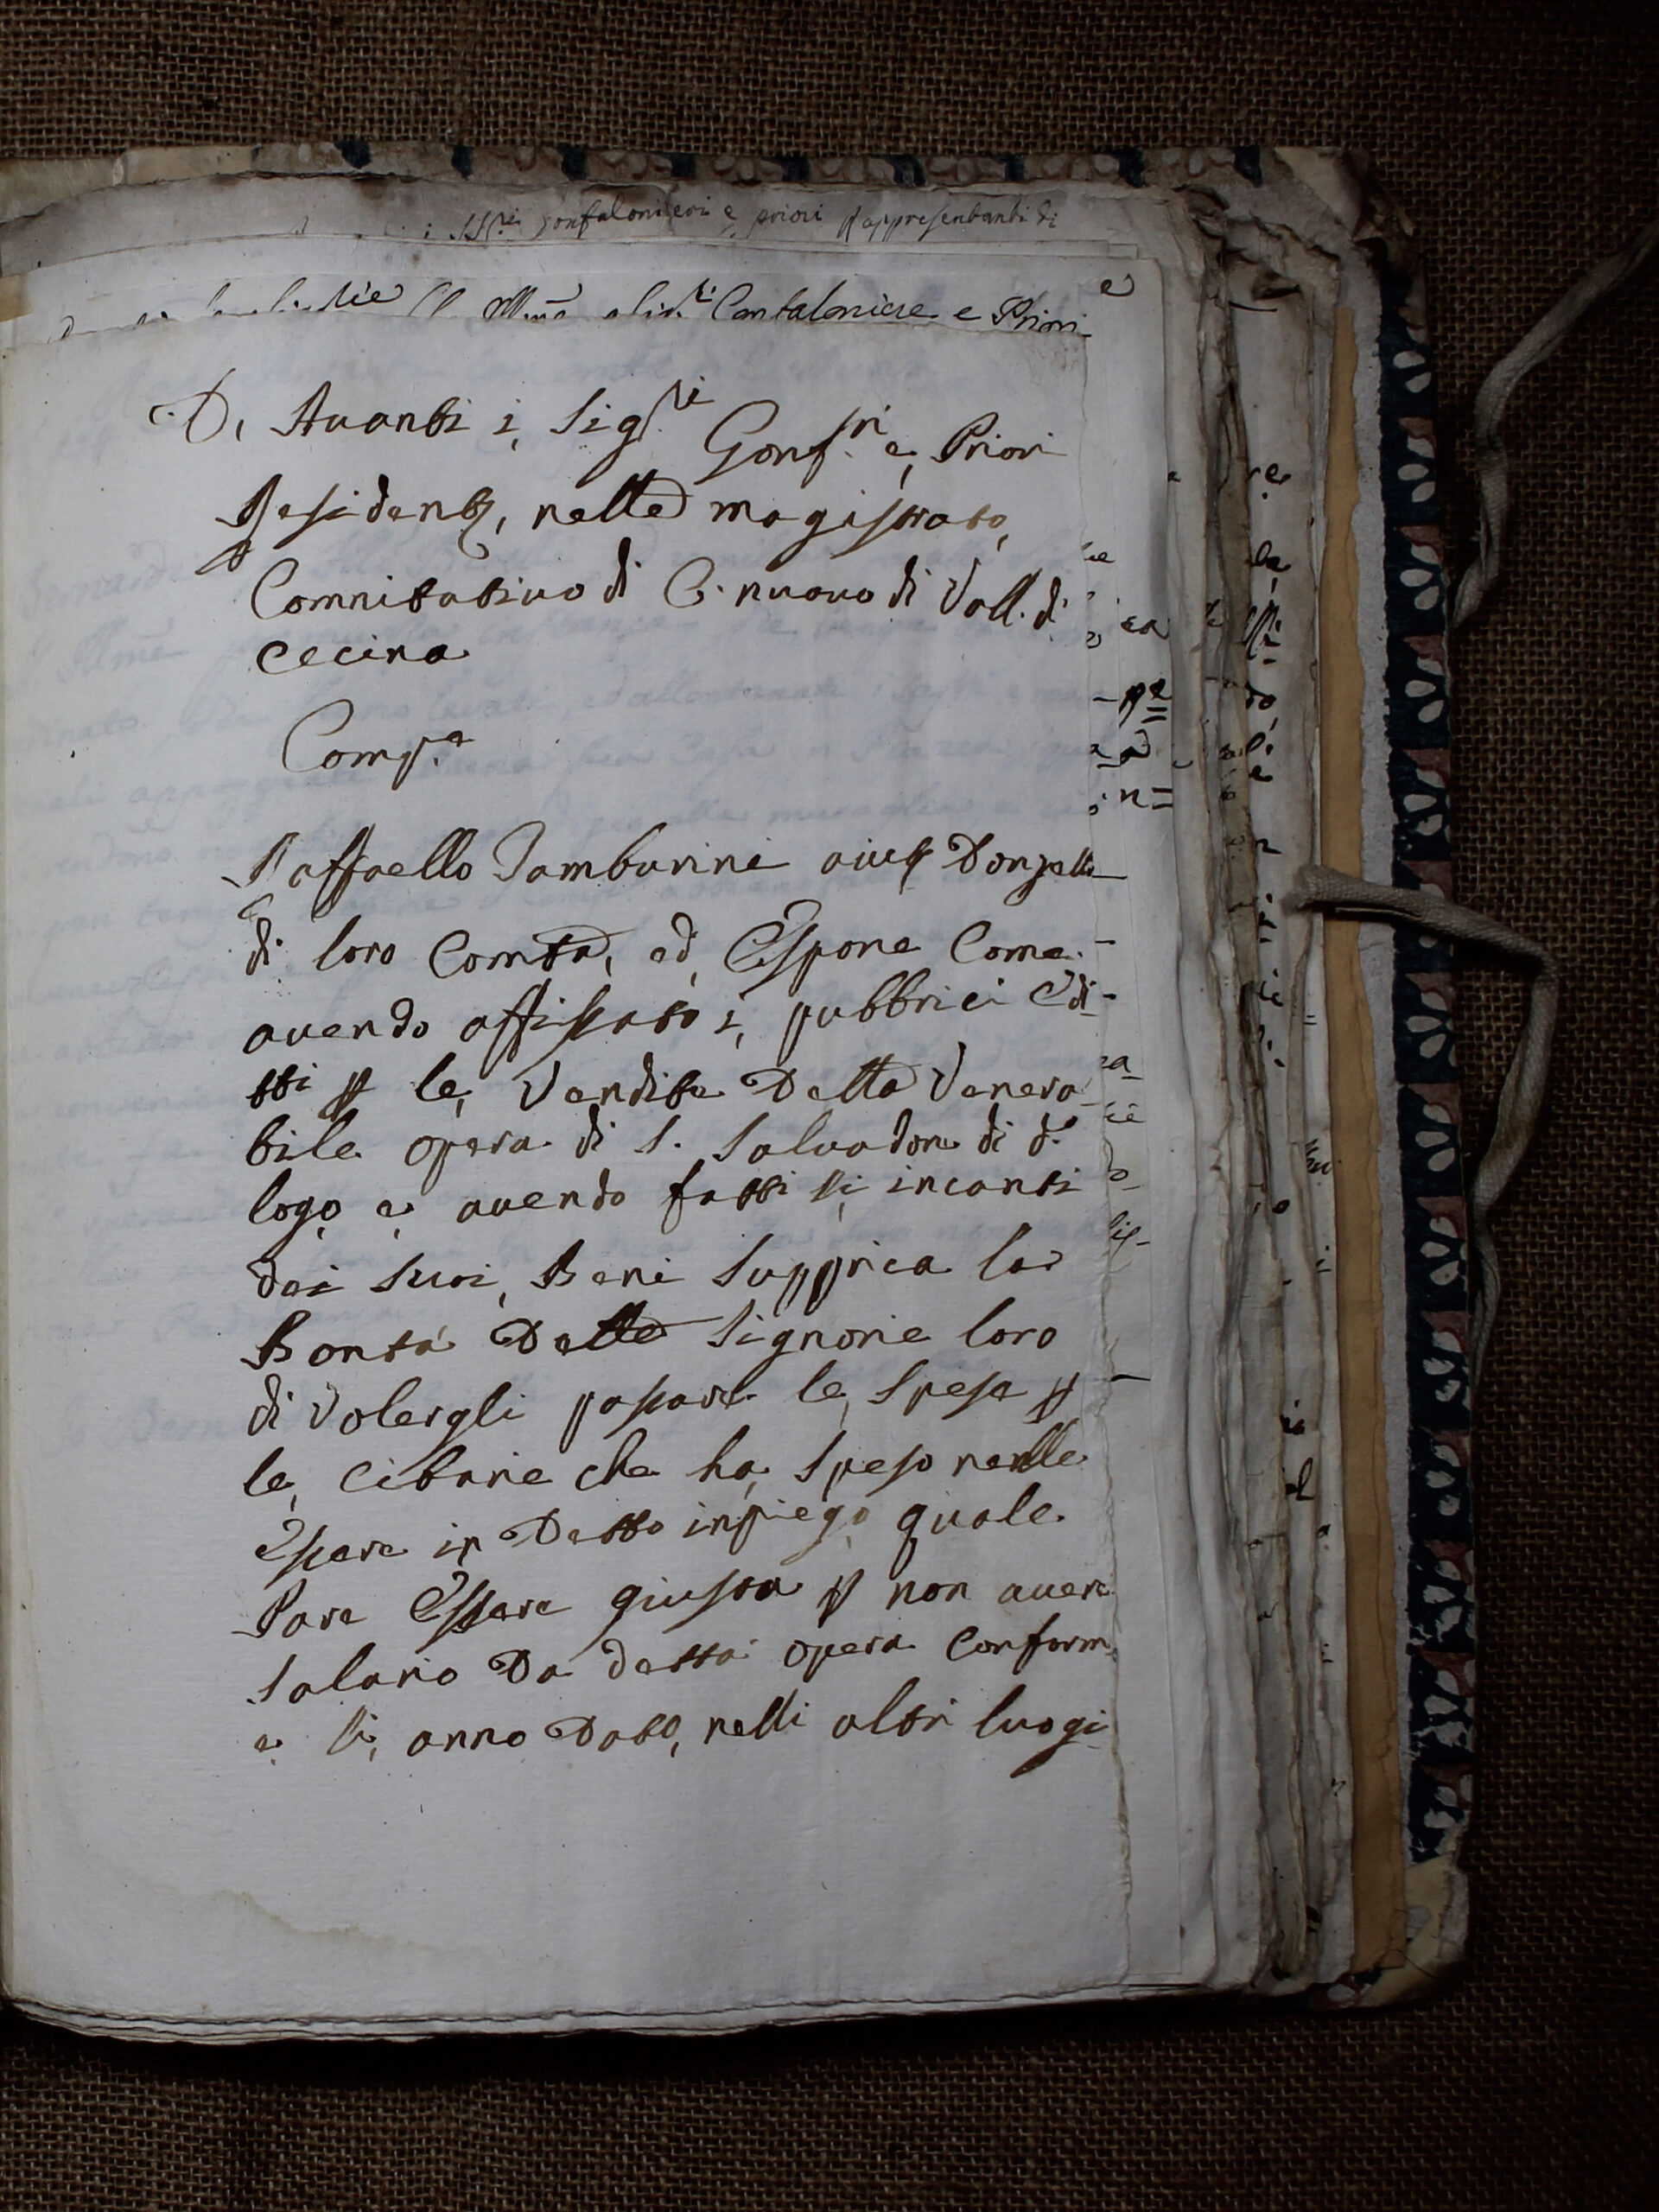 i SS.ri Gonfalonieri e priori Rappresentanti di
Gonfaloniere e Priori
D. Auanti i, Sig.ri Gonf.ri e, Priori
Residenti, nelle magistrato,
Comnitatiuo di C. nuouo di Vall. di
Cecina
Comp.e
Raffaello Tamburini Donzello
di loro Comta, ed, Espone Come
auendo affissato i, pubbrici Edi-
tti p le, Vendite Della Venera
bile opera di S. Saluadore di d.o
logo e auendo fatti li, incanti
dei Suoi, Beni Supprica la
Bontà Delle Signorie loro
di Volergli passare le, Spese p
le, Cibarie che ha, Speso nelle
Essere in Detto inpiego quale
Pare Essere giusta p non auere
Salario Da detta opera Conform
e li, anno Dato, nelli altri luogi